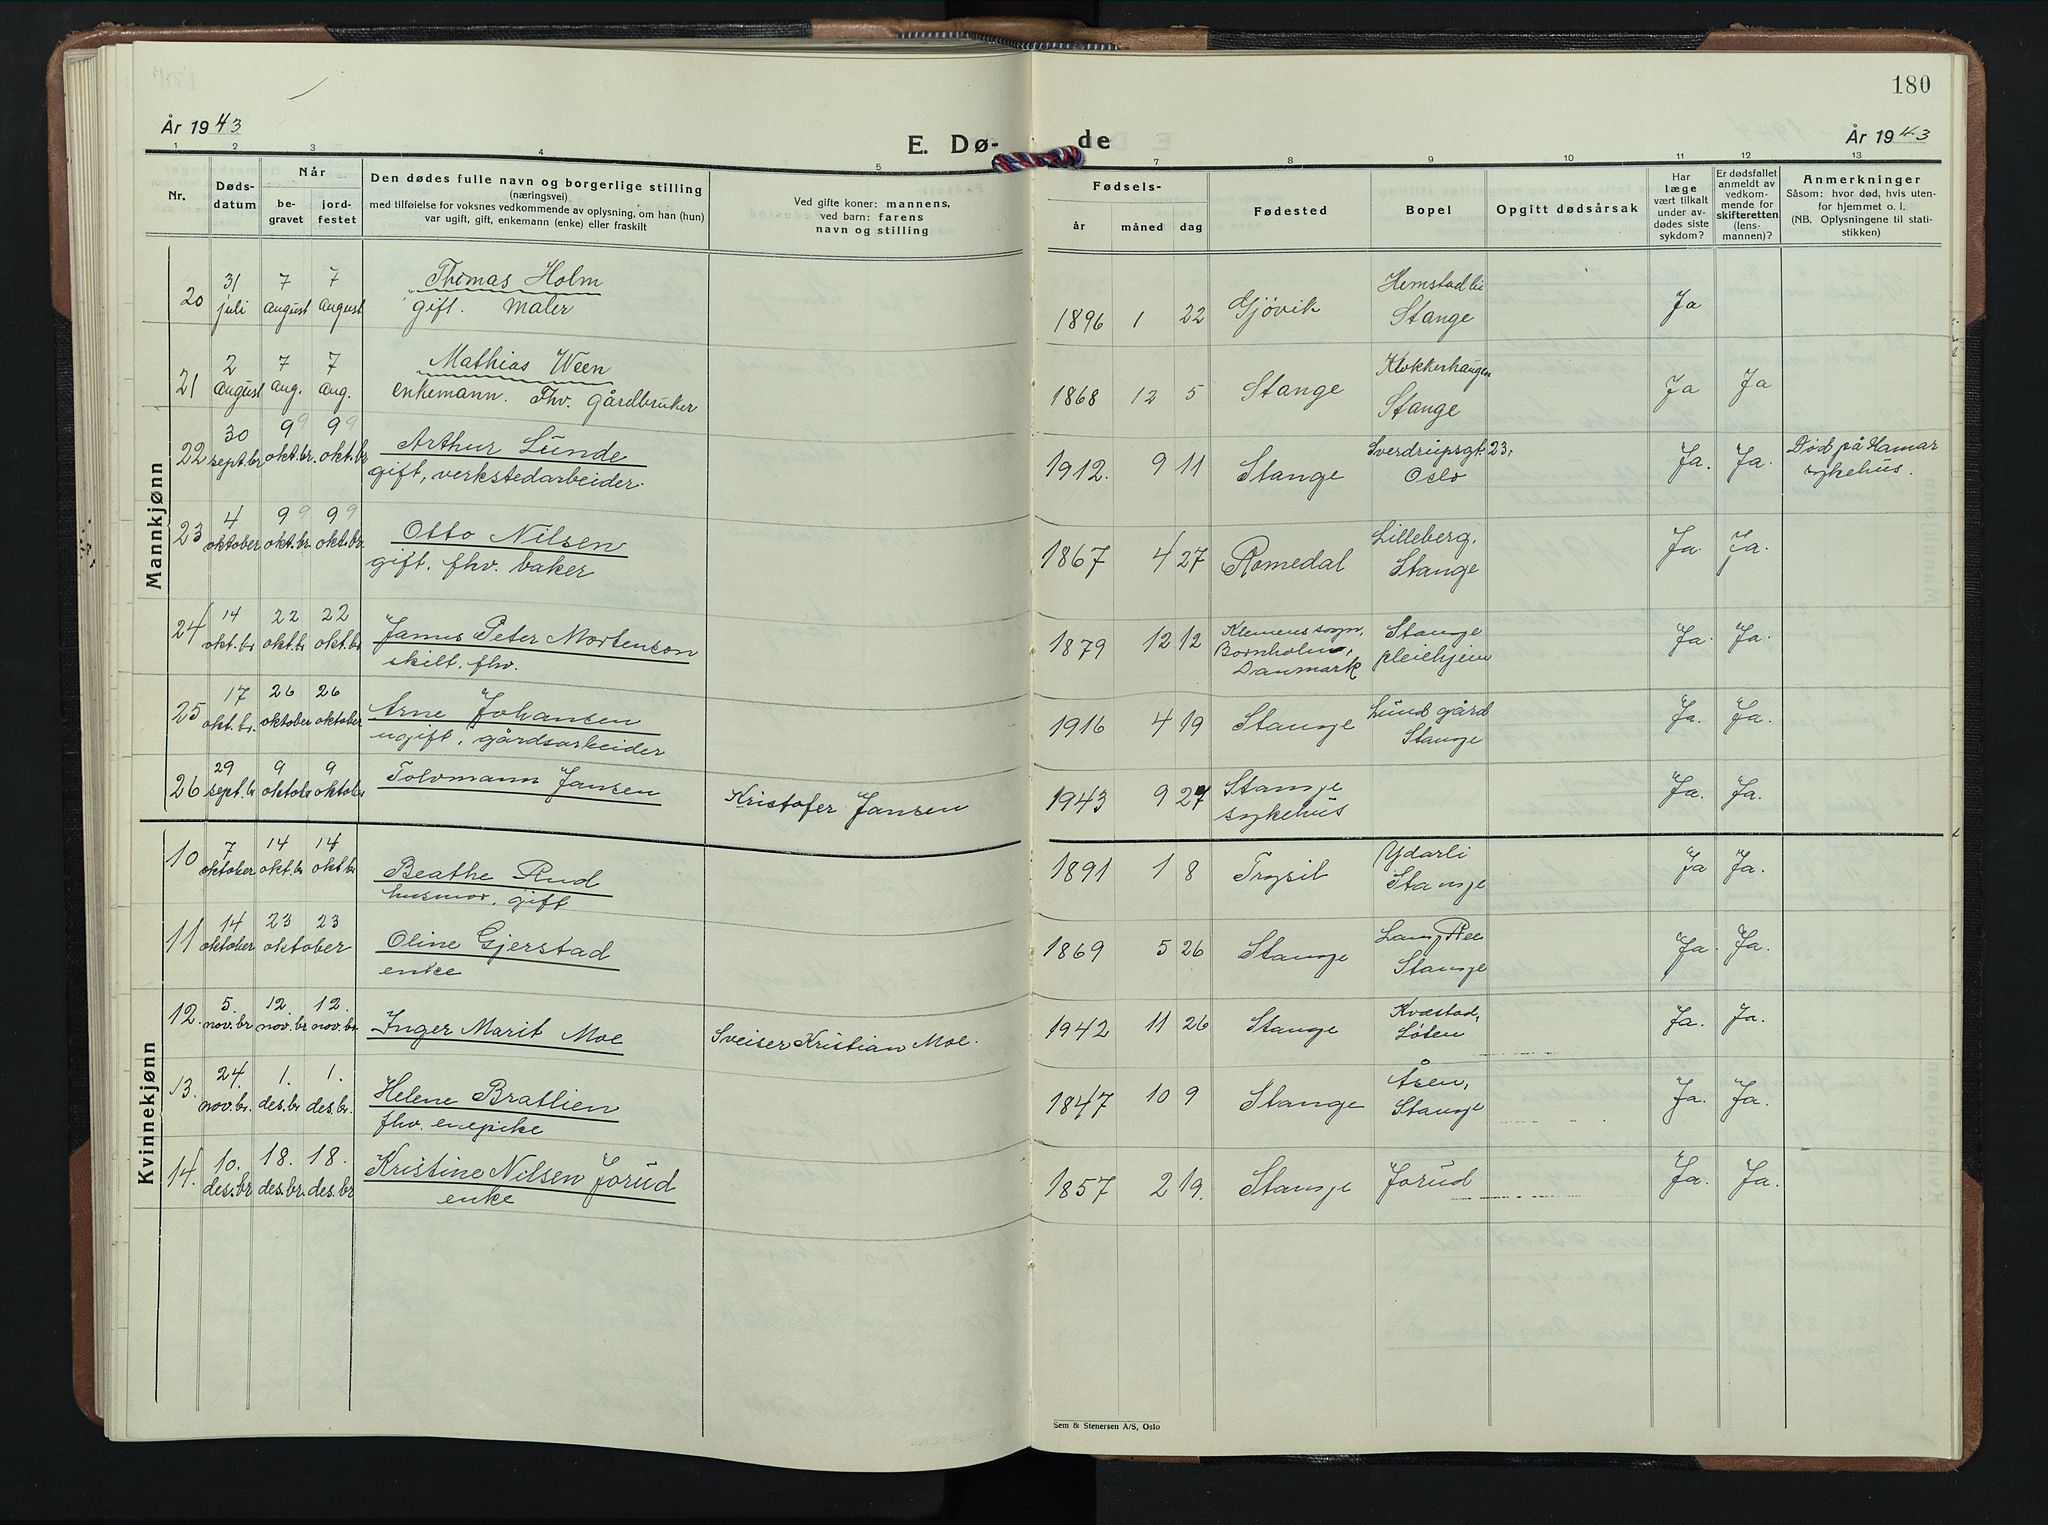 180
År 1943
E. Døde
År 1943
1 2 3 4 5 7 8 9 10 11 12 13
Nr.
Døds-
datum
Når
be-
gravet
jord-
festet
Den dødes fulle navn og borgerlige stilling
(næringsvei)
med tilføielse for voksnes vedkommende av oplysning, om han (hun)
var ugift, gift, enkemann (enke) eller fraskilt
Ved gifte koner: mannens,
ved barn: farens
navn og stilling
Fødsels-
år måned dag
Fødested
Bopel
Opgitt dødsårsak
Har
læge
vært tilkalt
under av-
dødes siste
sykdom?
Er dødsfallet
anmeldt av
vedkom-
mende for
skifteretten
(lens-
mannen)?
Anmerkninger
Såsom: hvor død, hvis uten-
for hjemmet o. l.
(NB. Oplysningene til stati-
stikken)
Mannkjønn
20 31 juli 7 august 7 august Thomas Holm
gift. Maler
1896 1 22 Gjøvik Hemstadlie
Stange Ja
21 2 august 7 aug. 7 aug. Mathias Ween
enkemann. Fhv. gårdbruker
1868 12 5 Stange Klokkerhaugen
Stange Ja Ja
22 30 sept.br 9 okt.br. 9 okt.br Arthur Lunde
gift, verkstedarbeider.
1912. 9 11 Stange Sverdrupsgt. 23,
Oslo Ja. Ja. Død på Hamar
sykehus.
23 4 oktober 9 okt.br. 9 okt.br. Otto Nilsen
gift. fhv. baker
1867 4 27 Romedal Lilleberg,
Stange Ja. Ja.
24 14 okt.br 22 okt.br 22 okt.br Janus Peter Mortenson
skilt. fhv.
1879 12 12 Klemens sogn,
Bornholm,
Danmark Stange
pleiehjem Ja. Ja.
25 17 okt.br. 26 oktober 26 oktober Arne Johansen
ugift, gårdsarbeider
1916 4 19 Stange Lund gård
Stange Ja. Ja.
26 29 sept.br 9 oktober 9 oktober Tolvmann Jansen
Kristofer Jansen
1943 9 27 Stange
sykehus Ja. Ja.
Kvinnekjønn
10 7 oktober 14 okt.br 14 okt.br Beathe Rud
husmor, gift
1891 1 8 Trysil Ydarli
Stange Ja Ja.
11 14 oktober 23 23 oktober Oline Gjerstad
enke
1869 5 26 Stange
Stange Ja. Ja.
12. 5. nov.br 12. nov.br 12. nov.br. Inger Marit Moe
Sveiser Kristian Moe.
1942 11 26 Stange Kvæstad,
Løten Ja. Ja.
13. 24. nov.br. 1. des.br 1. des.br. Helene Bratlien
fhv.
1847 10 9 Stange Åsen,
Stange Ja. Ja.
14. 10. des.br 18. des.br. 18. des.br Kristine Nilsen Jorud
enke
1857 2 19. Stange Jorud Ja. Ja.
Sem & Stenersen A/S, Oslo